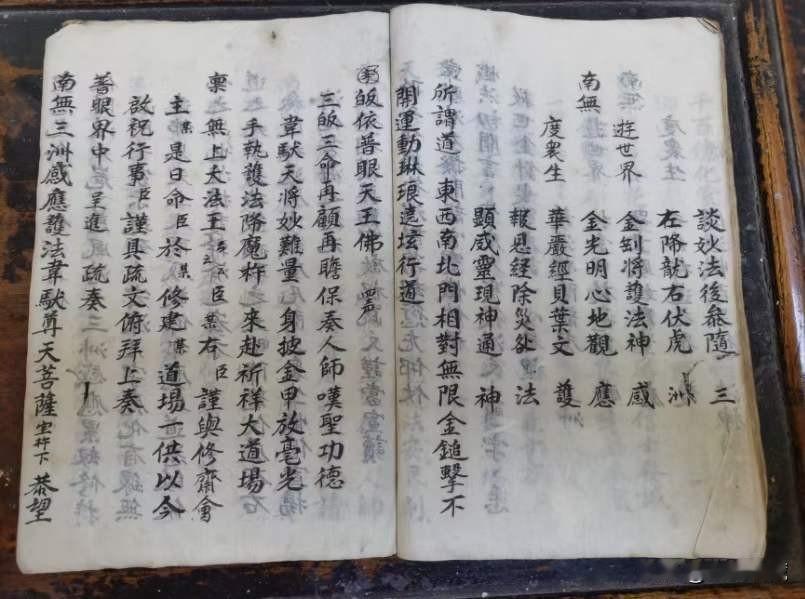 談妙法後參隨 三
在降龍右伏虎 洲
金剛將護法神 感
南無 遊世界 金光明心地觀 應
度衆生 華嚴經貝葉文 護
報恩経除災 法
顯威靈現神通 神
所謂道 東西南北門相對無限金鎚擊不
開運動琳琅遶坛行道
皈依普眼天王佛
三皈三命再顧再瞻保奏人師嘆聖功德
韋馱天將妙難量身披金甲放毫光
手執護法降魔杵來赴祈祥大道場
稟 無上大法王 臣某右臣謹與修齋會
主某是日命臣於某修建某道場一供以今
啟祝行事臣謹具疏文俯拜上奏
普眼界中呈進疏奏
南無三洲感應護法韋馱尊天菩薩宝杵下 恭望